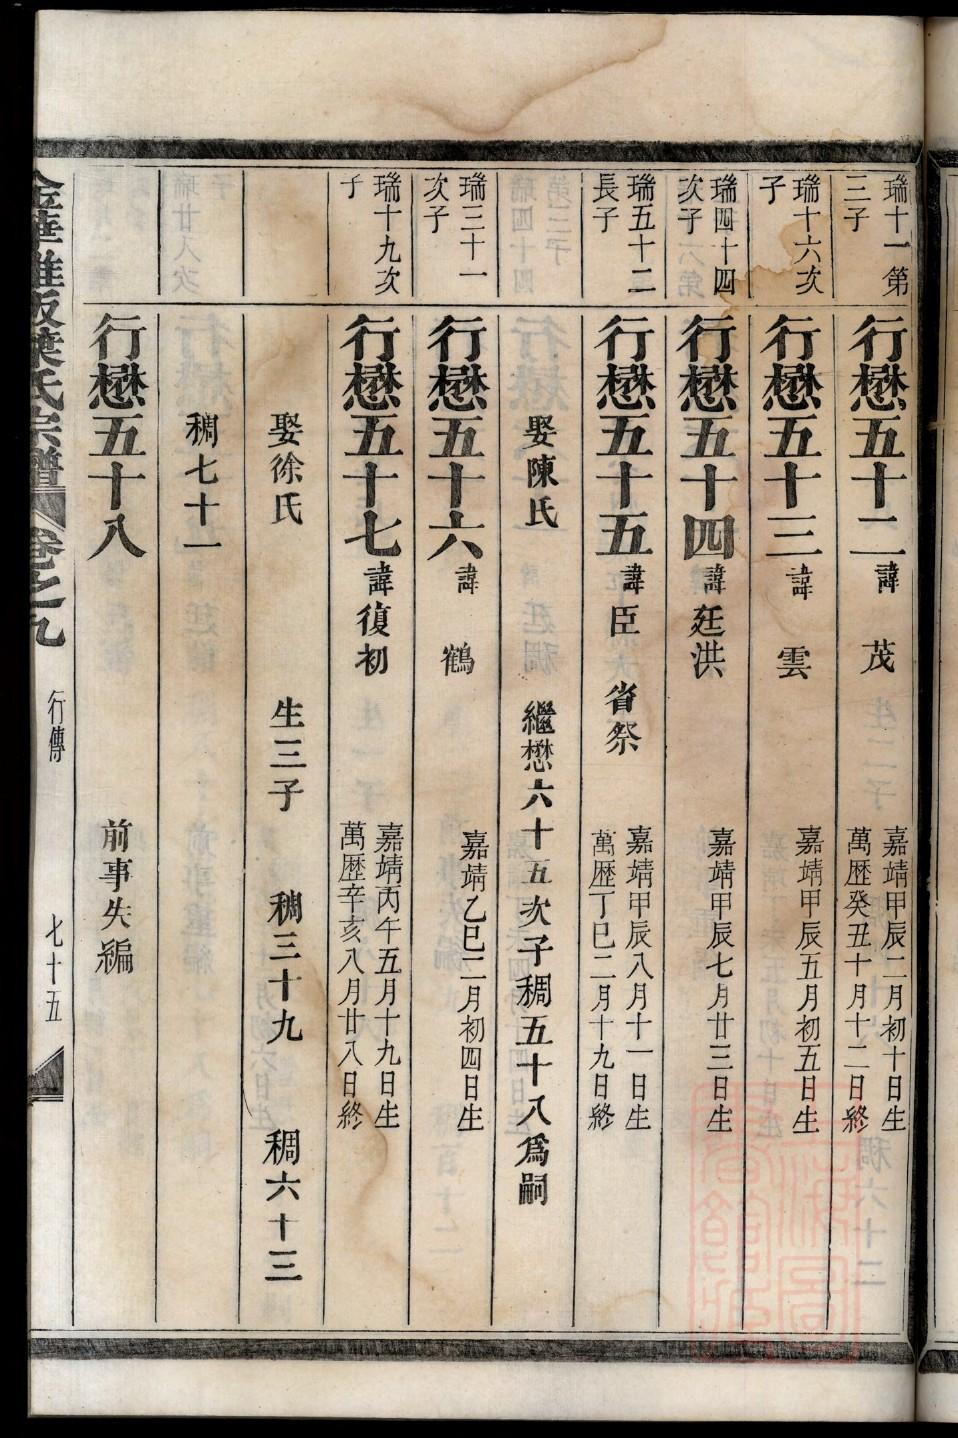 瑞十一第
三子
行懋五十二諱 茂
嘉靖甲辰二月初十日生
萬歷癸丑十月十二日終
瑞十六次
子
行懋五十三諱 雲
嘉靖甲辰五月初五日生
瑞四十四
次子
行懋五十四諱廷洪
嘉靖甲辰七月廿三日生
瑞五十二
長子
行懋五十五諱臣 省祭
嘉靖甲辰八月十一日生
萬歷丁巳二月十九日終
娶陳氏 繼懋六十五次子稠五十八為嗣
瑞三十一
次子
行懋五十六諱 鶴
嘉靖乙巳二月初四日生
瑞十九次
子
行懋五十七諱復初
嘉靖丙午五月十九日生
萬歷辛亥八月廿八日終
娶徐氏 生三子 稠三十九 稠六十三
稠七十一
行懋五十八 前事失編
葉氏宗譜 卷之九 行傳 七十五